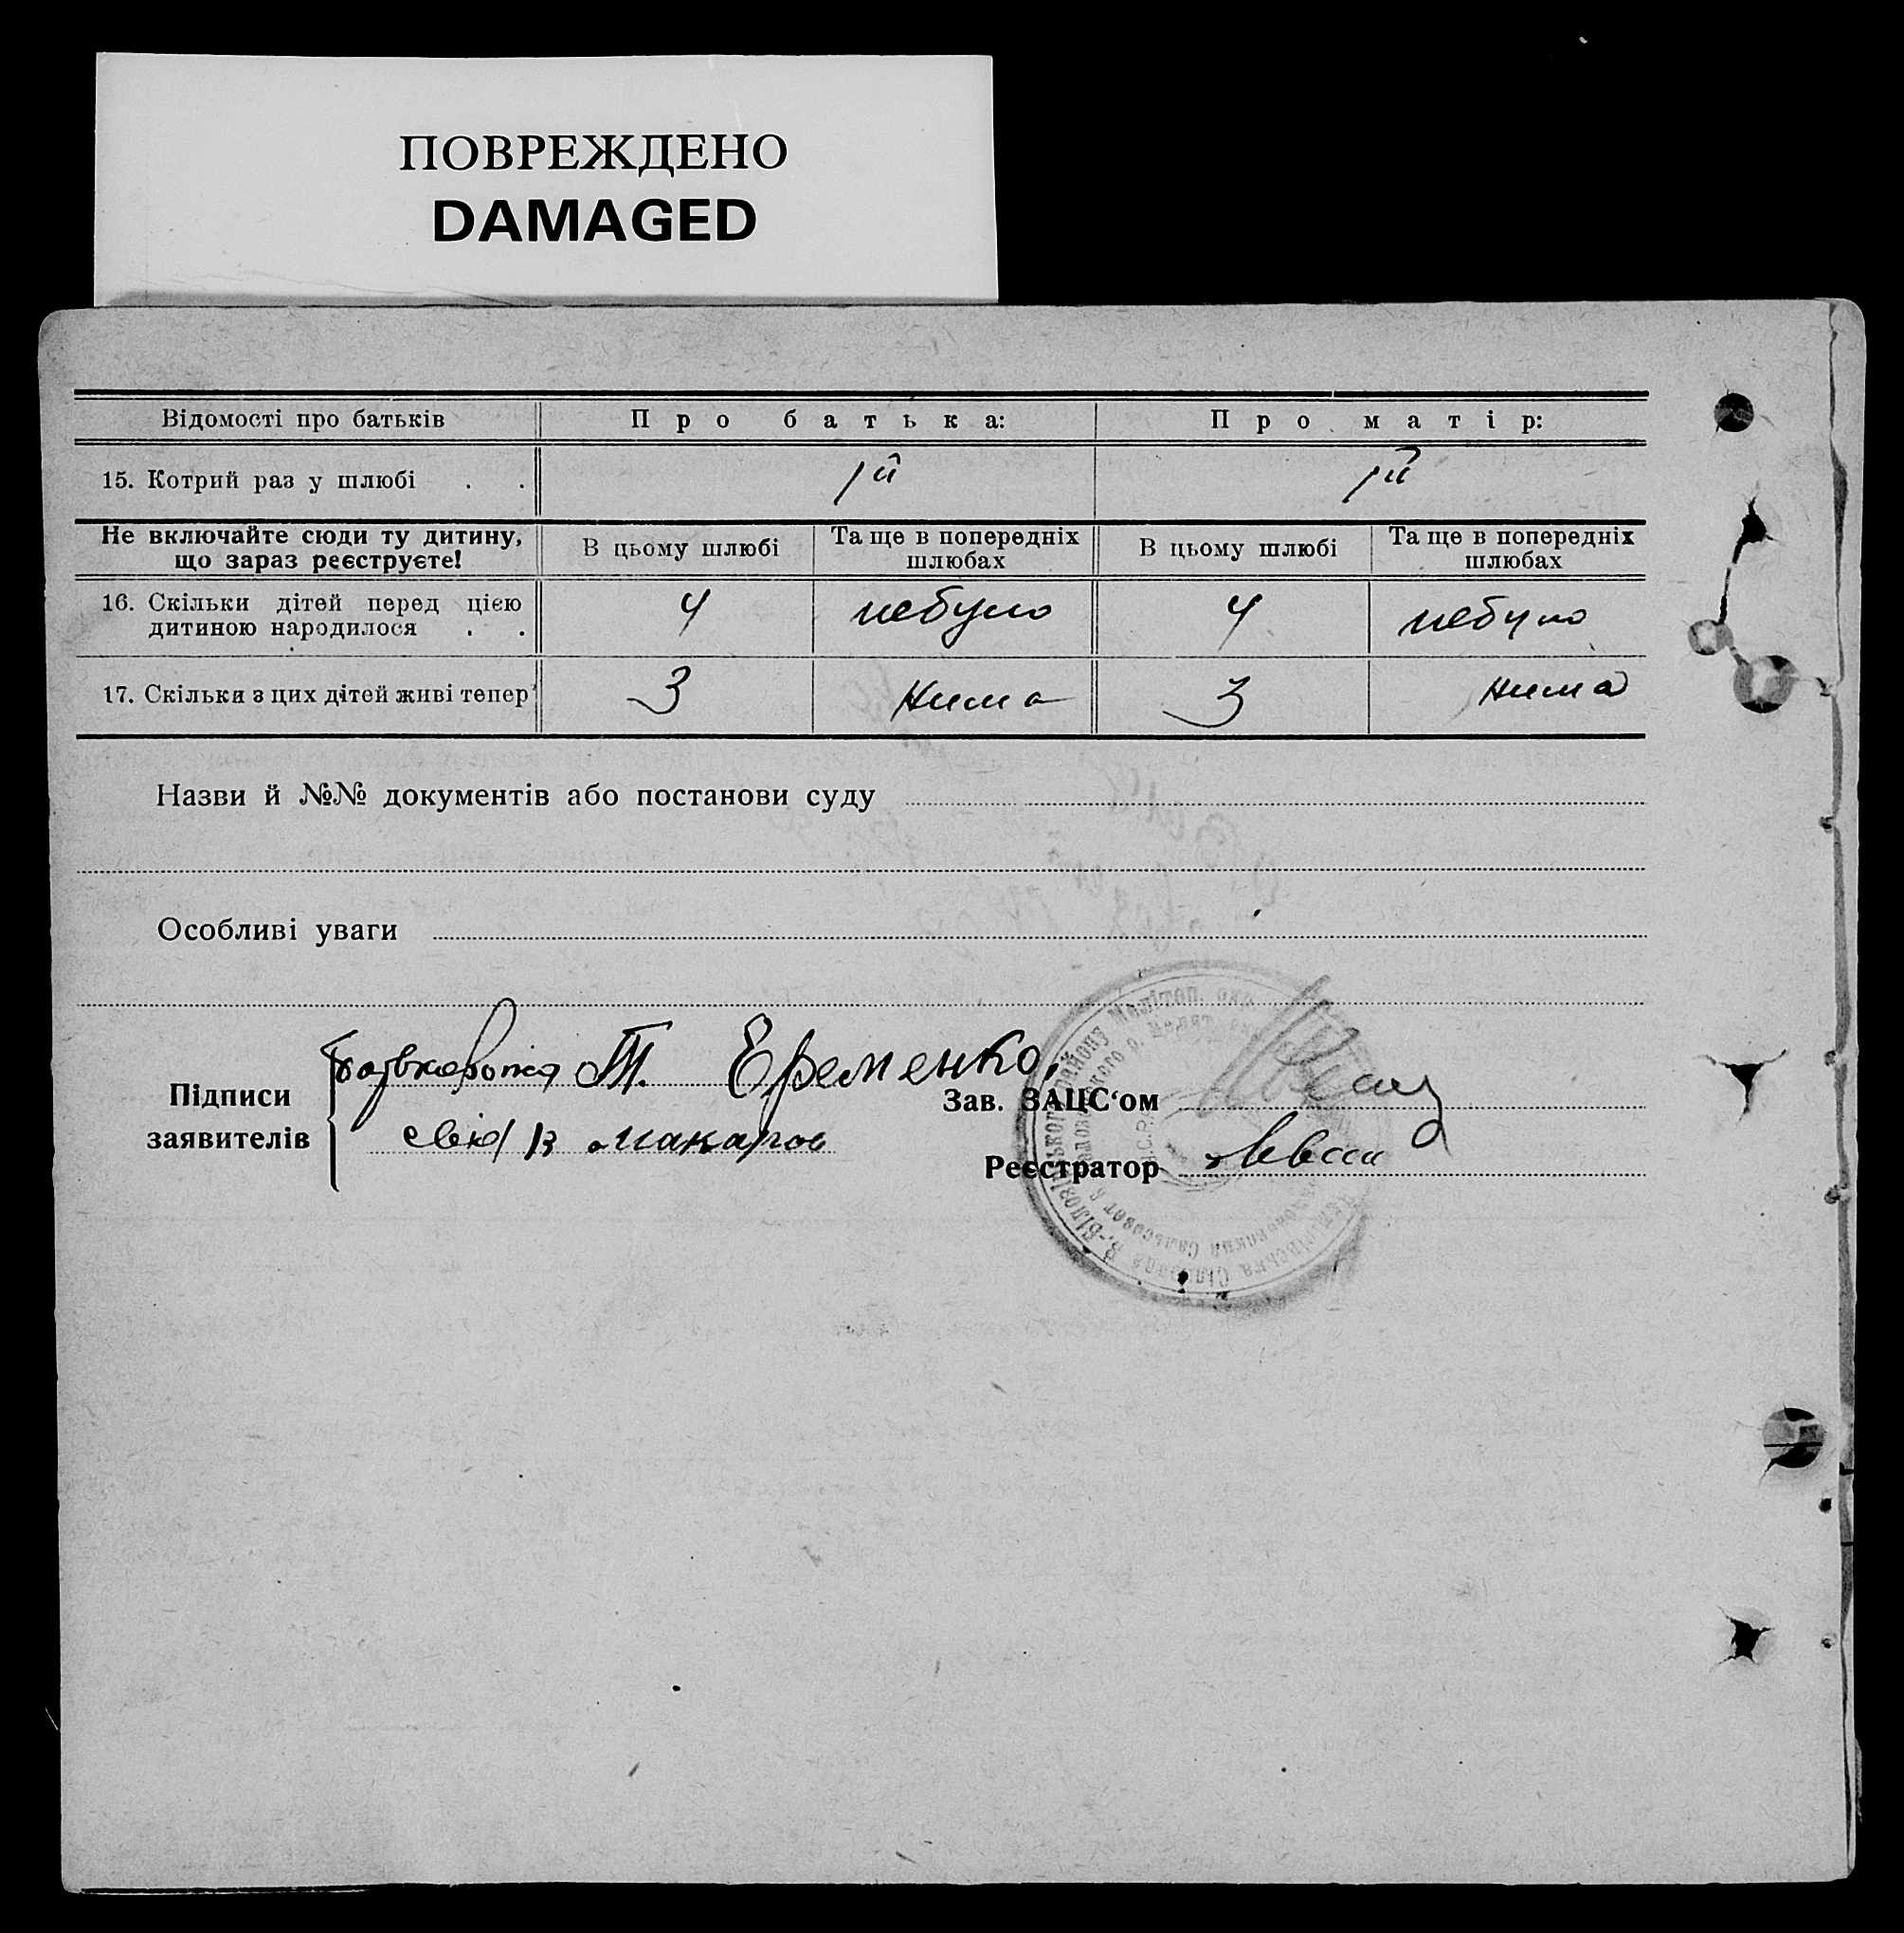 ПОВРЕЖДЕНО
DAMAGED
Відомості про батьків
Про батька:
Про матір:
15. Котрий раз у шлюбі . .
1й
1й
Не включайте сюди ту дитину,
що зараз реєструєте!
В цьому шлюбі
Та ще в попередніх
шлюбах
В цьому шлюбі
Та ще в попередніх
шлюбах
16. Скільки дітей перед цією
дитиною народилося . .
4
небуло
4
небуло
17. Скільки з цих дітей живі тепер
3
Нима
3
Нима
Назви й №№ документів або постанови суду
Особливі уваги
Підписи
заявителів
Т. Еременко,
макаров
Зав. ЗАЦС'ом
Реєстратор